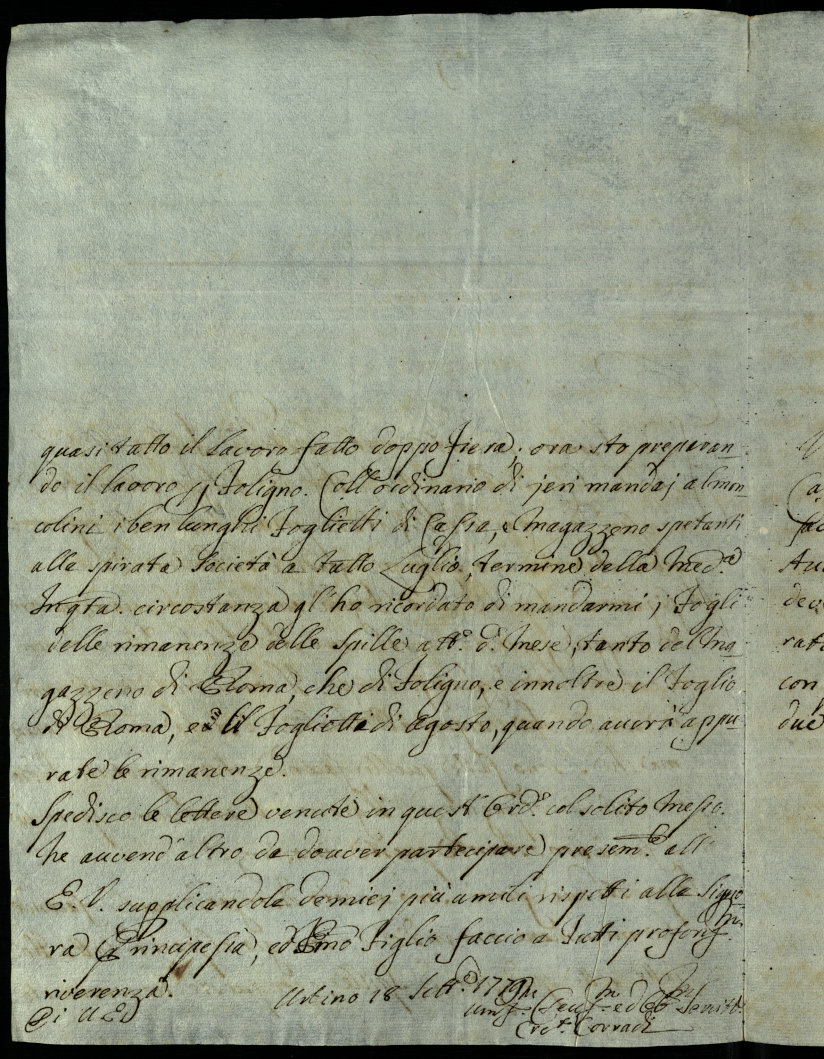 quasi tutto il lavoro fatto doppo Fiera; ora sto preparan-
do il lavoro p Foligno. Coll'ordinario di jeri mandaj a
colini i ben lunghi Foglietti di Cassa, e Magazzeno spetanti
alla spirata Società a tutto Luglio, termine della Med.ª
In qta. circostanza gl'ho ricordato di mandarmi j Fogli
delle rimanenze delle Spille a tt.º d.º Mese, tanto del Ma-
gazzeno di Roma, che di Foligno, e innoltre il Foglio
di Roma, e il Foglietto di Agosto, quando averà appu-
rate le rimanenze.
Spedisco le lettere venute in quest'Ord.º col solito Messo.
Ne avend'altro da douver partecipare presem.te all'
E. V. supplicandola de miej più umili rispetti alla Signo-
ra Principessa, ed Figlio faccio a Tutti profond.
riverenza.
Di V. E. Urbino 18 Sett.e
Corradi